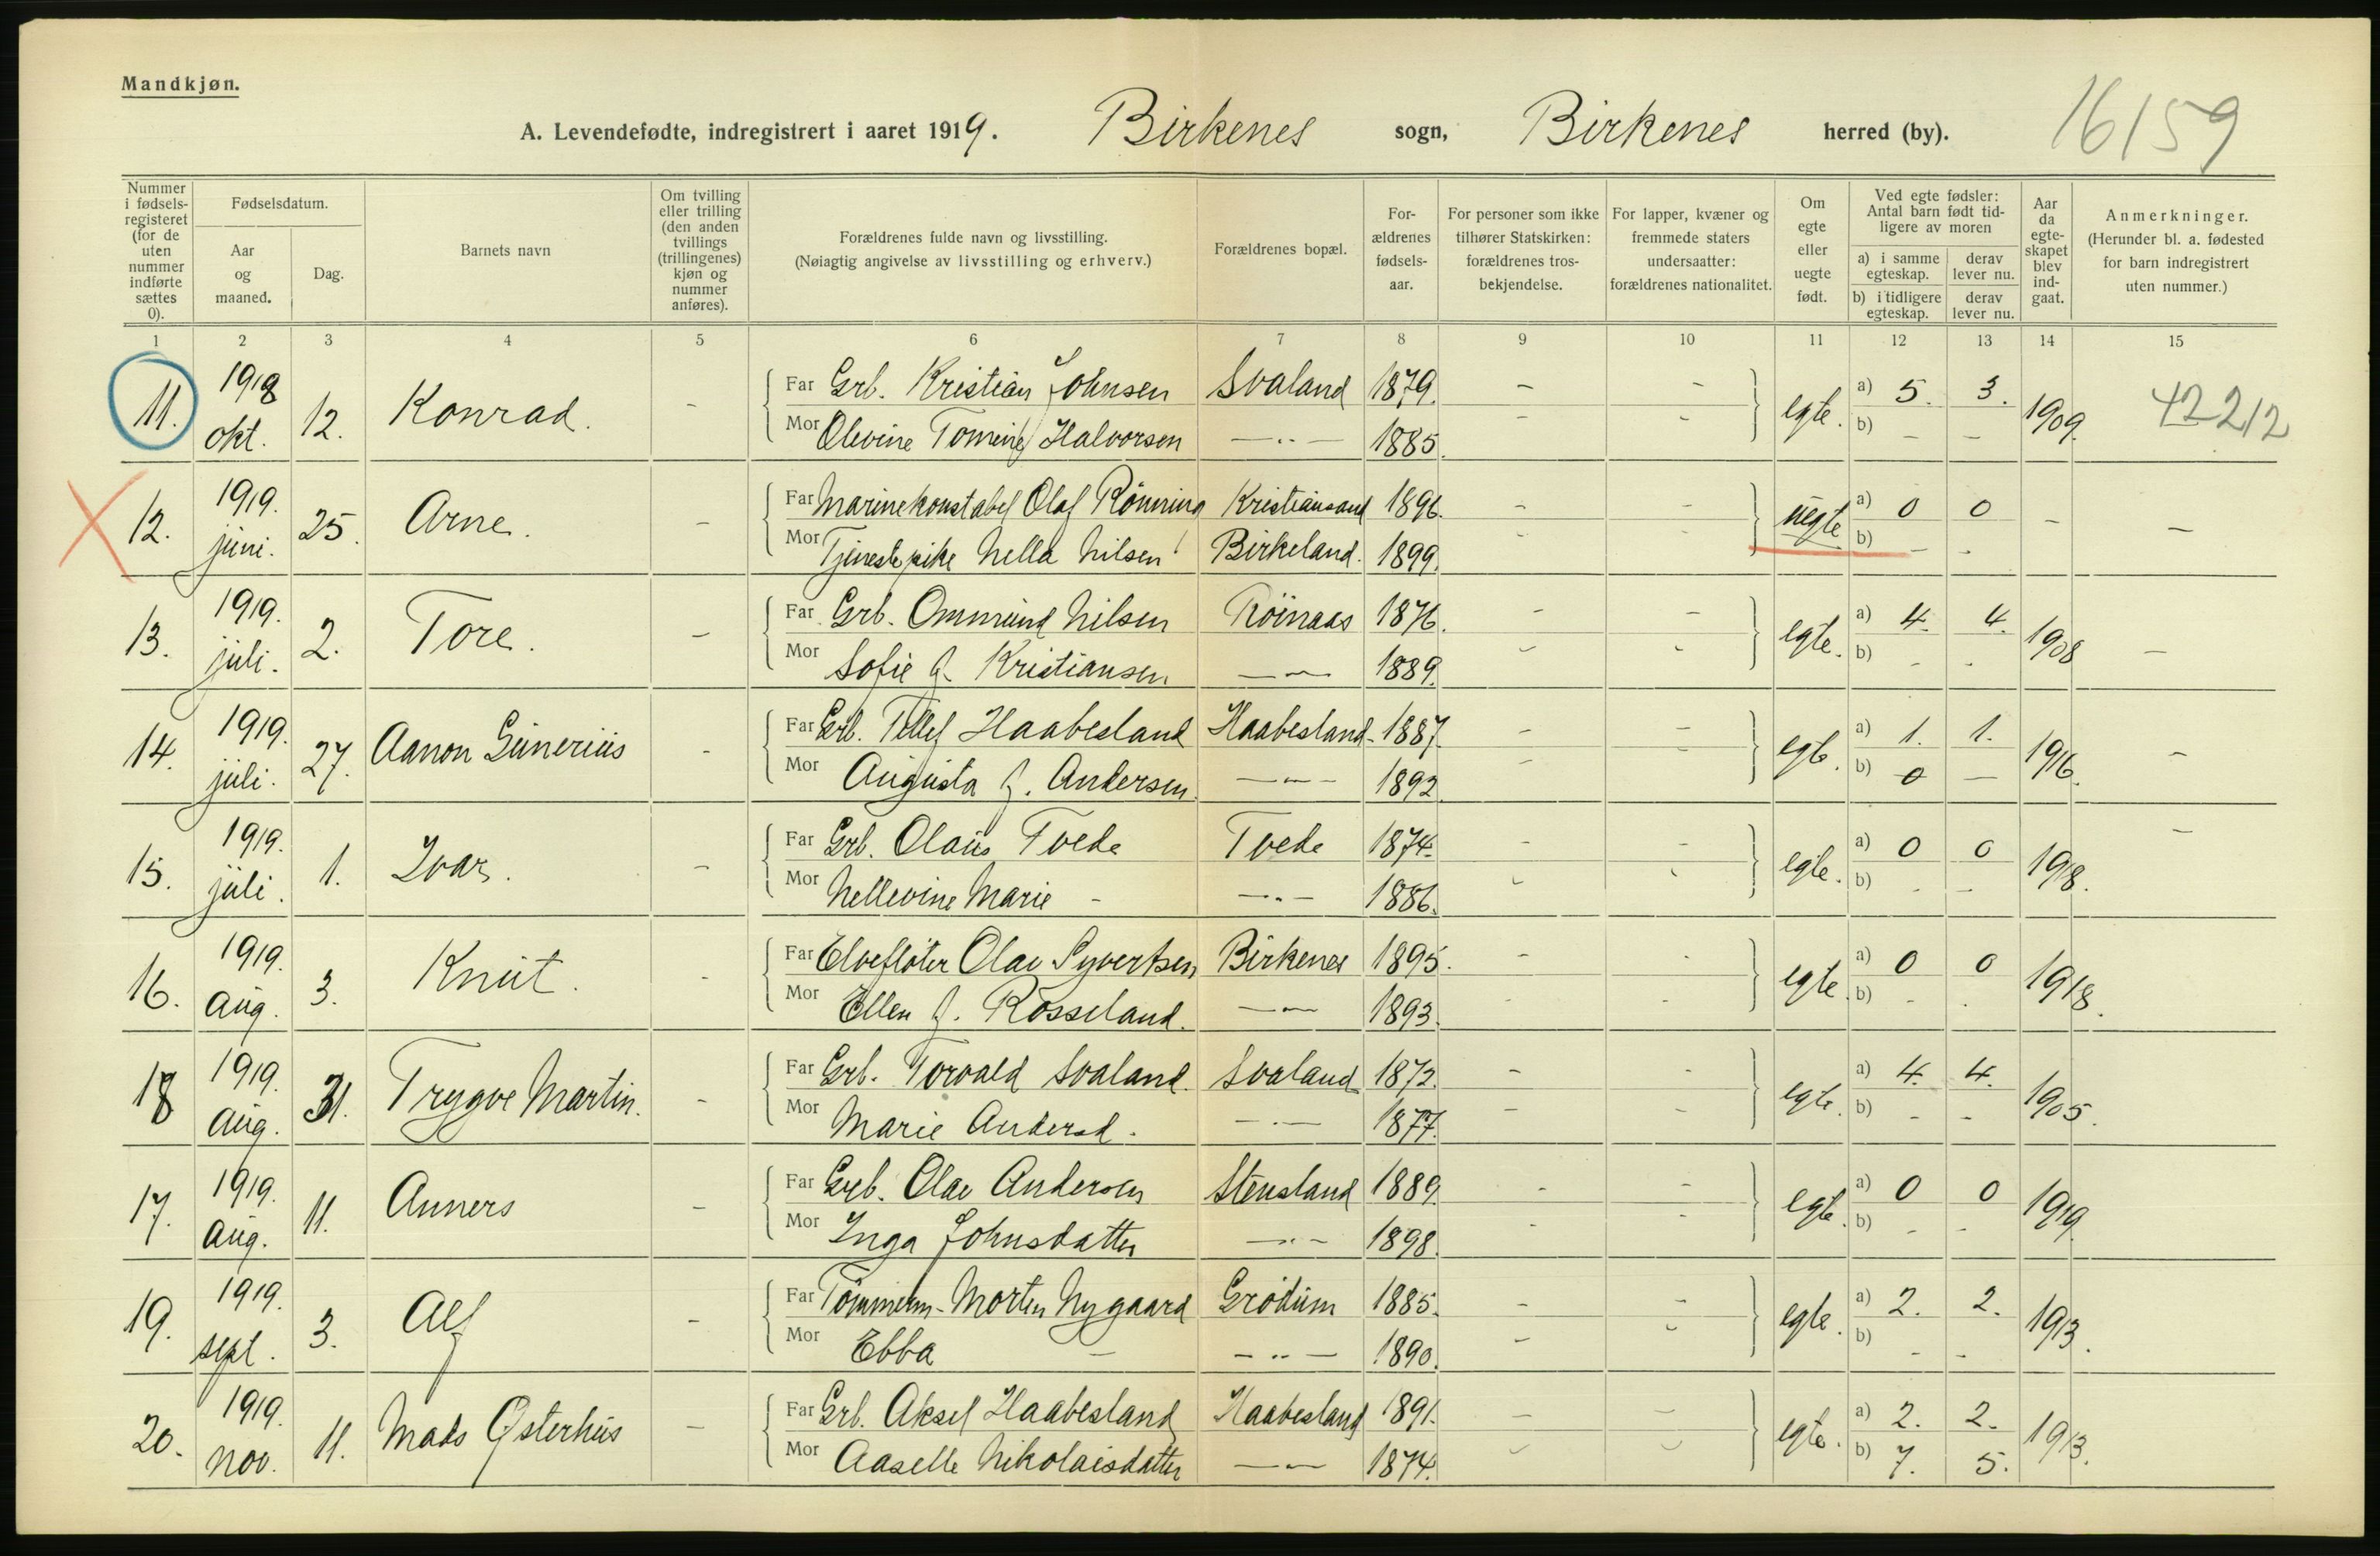 Mandkjøn.
A. Levendefødte, indregistrert i aaret 1919. Birkenes sogn, Birkenes herred (by). 16159
Nummer i fødsels-registeret (for de uten nummer indførte sættes 0).
Fødselsdatum.
Aar og maaned.
Dag.
Barnets navn
Om tvilling eller trilling (den anden tvillings (trillingenes) kjøn og nummer anføres).
Forældrenes fulde navn og livsstilling.
(Nøiagtig angivelse av livsstilling og erhverv.)
Forældrenes bopæl.
For-ældrenes fødsels-aar.
For personer som ikke tilhører Statskirken: forældrenes tros-bekjendelse.
For lapper, kvæner og fremmede staters undersaatter: forældrenes nationalitet.
Om egte eller uegte født.
Ved egte fødsler: Antal barn født tid-ligere av moren
a) i samme egteskap. derav lever nu.
b) i tidligere egteskap. derav lever nu.
Aar da egte-skapet blev ind-gaat.
Anmerkninger.
(Herunder bl. a. fødested for barn indregistrert uten nummer.)
1 2 3 4 5 6 7 8 9 10 11 12 13 14 15
11. 1918 okt. 12. Konrad. - Far Grb. Kristian Johnsen Svaland 1879. - - egte. a) 5. 3. 1909. 42212
Mor Olevine Tomine Halvorsen —„— 1885. - - b) - -
12. 1919. juni. 25. Arne. - Far Marinekonstabel Olaf Rönning Kristiansand 1896. - - uegte a) 0 0 - -
Mor Tjenestepike Nella Nilsen Birkeland. 1899. - - b) - -
13. 1919. juli. 2. Tore. - Far Grb. Ommund Nilsen Röinaas 1876. - - egte. a) 4. 4. 1908 -
Mor Sofie f. Kristiansen —„— 1889. - - b) - -
14. 1919. juli. 27. Aanon Gunerius - Far Grb. Tellef Haabesland Haabesland. 1887. - - egte. a) 1. 1. 1916. -
Mor Augusta f. Andersen. —„— 1892. - - b) 0 -
15. 1919. juli. 1. Ivar. - Far Grb. Olaus Tvede Tvede 1874. - - egte. a) 0 0 1918. -
Mor Nellevine Marie - —„— 1886. - - b) - -
16. 1919. aug. 3. Knut. - Far Elvefløter Olav Syvertsen Birkenes 1895. - - egte. a) 0 0 1918.
Mor Ellen f. Rosseland. —„— 1893. - - b) - -
18 1919. aug. 31. Trygve Martin. - Far Grb. Torvald Svaland. Svaland 1872. - - egte. a) 4. 4. 1905.
Mor Marie Andersd. —„— 1877. - - b) - -
17. 1919. aug. 11. Anners - Far Grb. Olav Andersen Stensland 1889. - - egte. a) 0 0 1919.
Mor Inga Johnsdatter —„— 1898. - - b) - -
19. 1919. sept. 3. Alf - Far Tömmerm. Morten Nygaard Grödum 1885. - - egte. a) 2. 2. 1913.
Mor Ebba - —„— 1890. - - b) - -
20. 1919. nov. 11. Mads Østerhus - Far Grb. Aksel Haabesland Haabesland 1891. - - egte. a) 2. 2. 1913.
Mor Aaselle Nikolaisdatter —„— 1874. - - b) 7. 5.